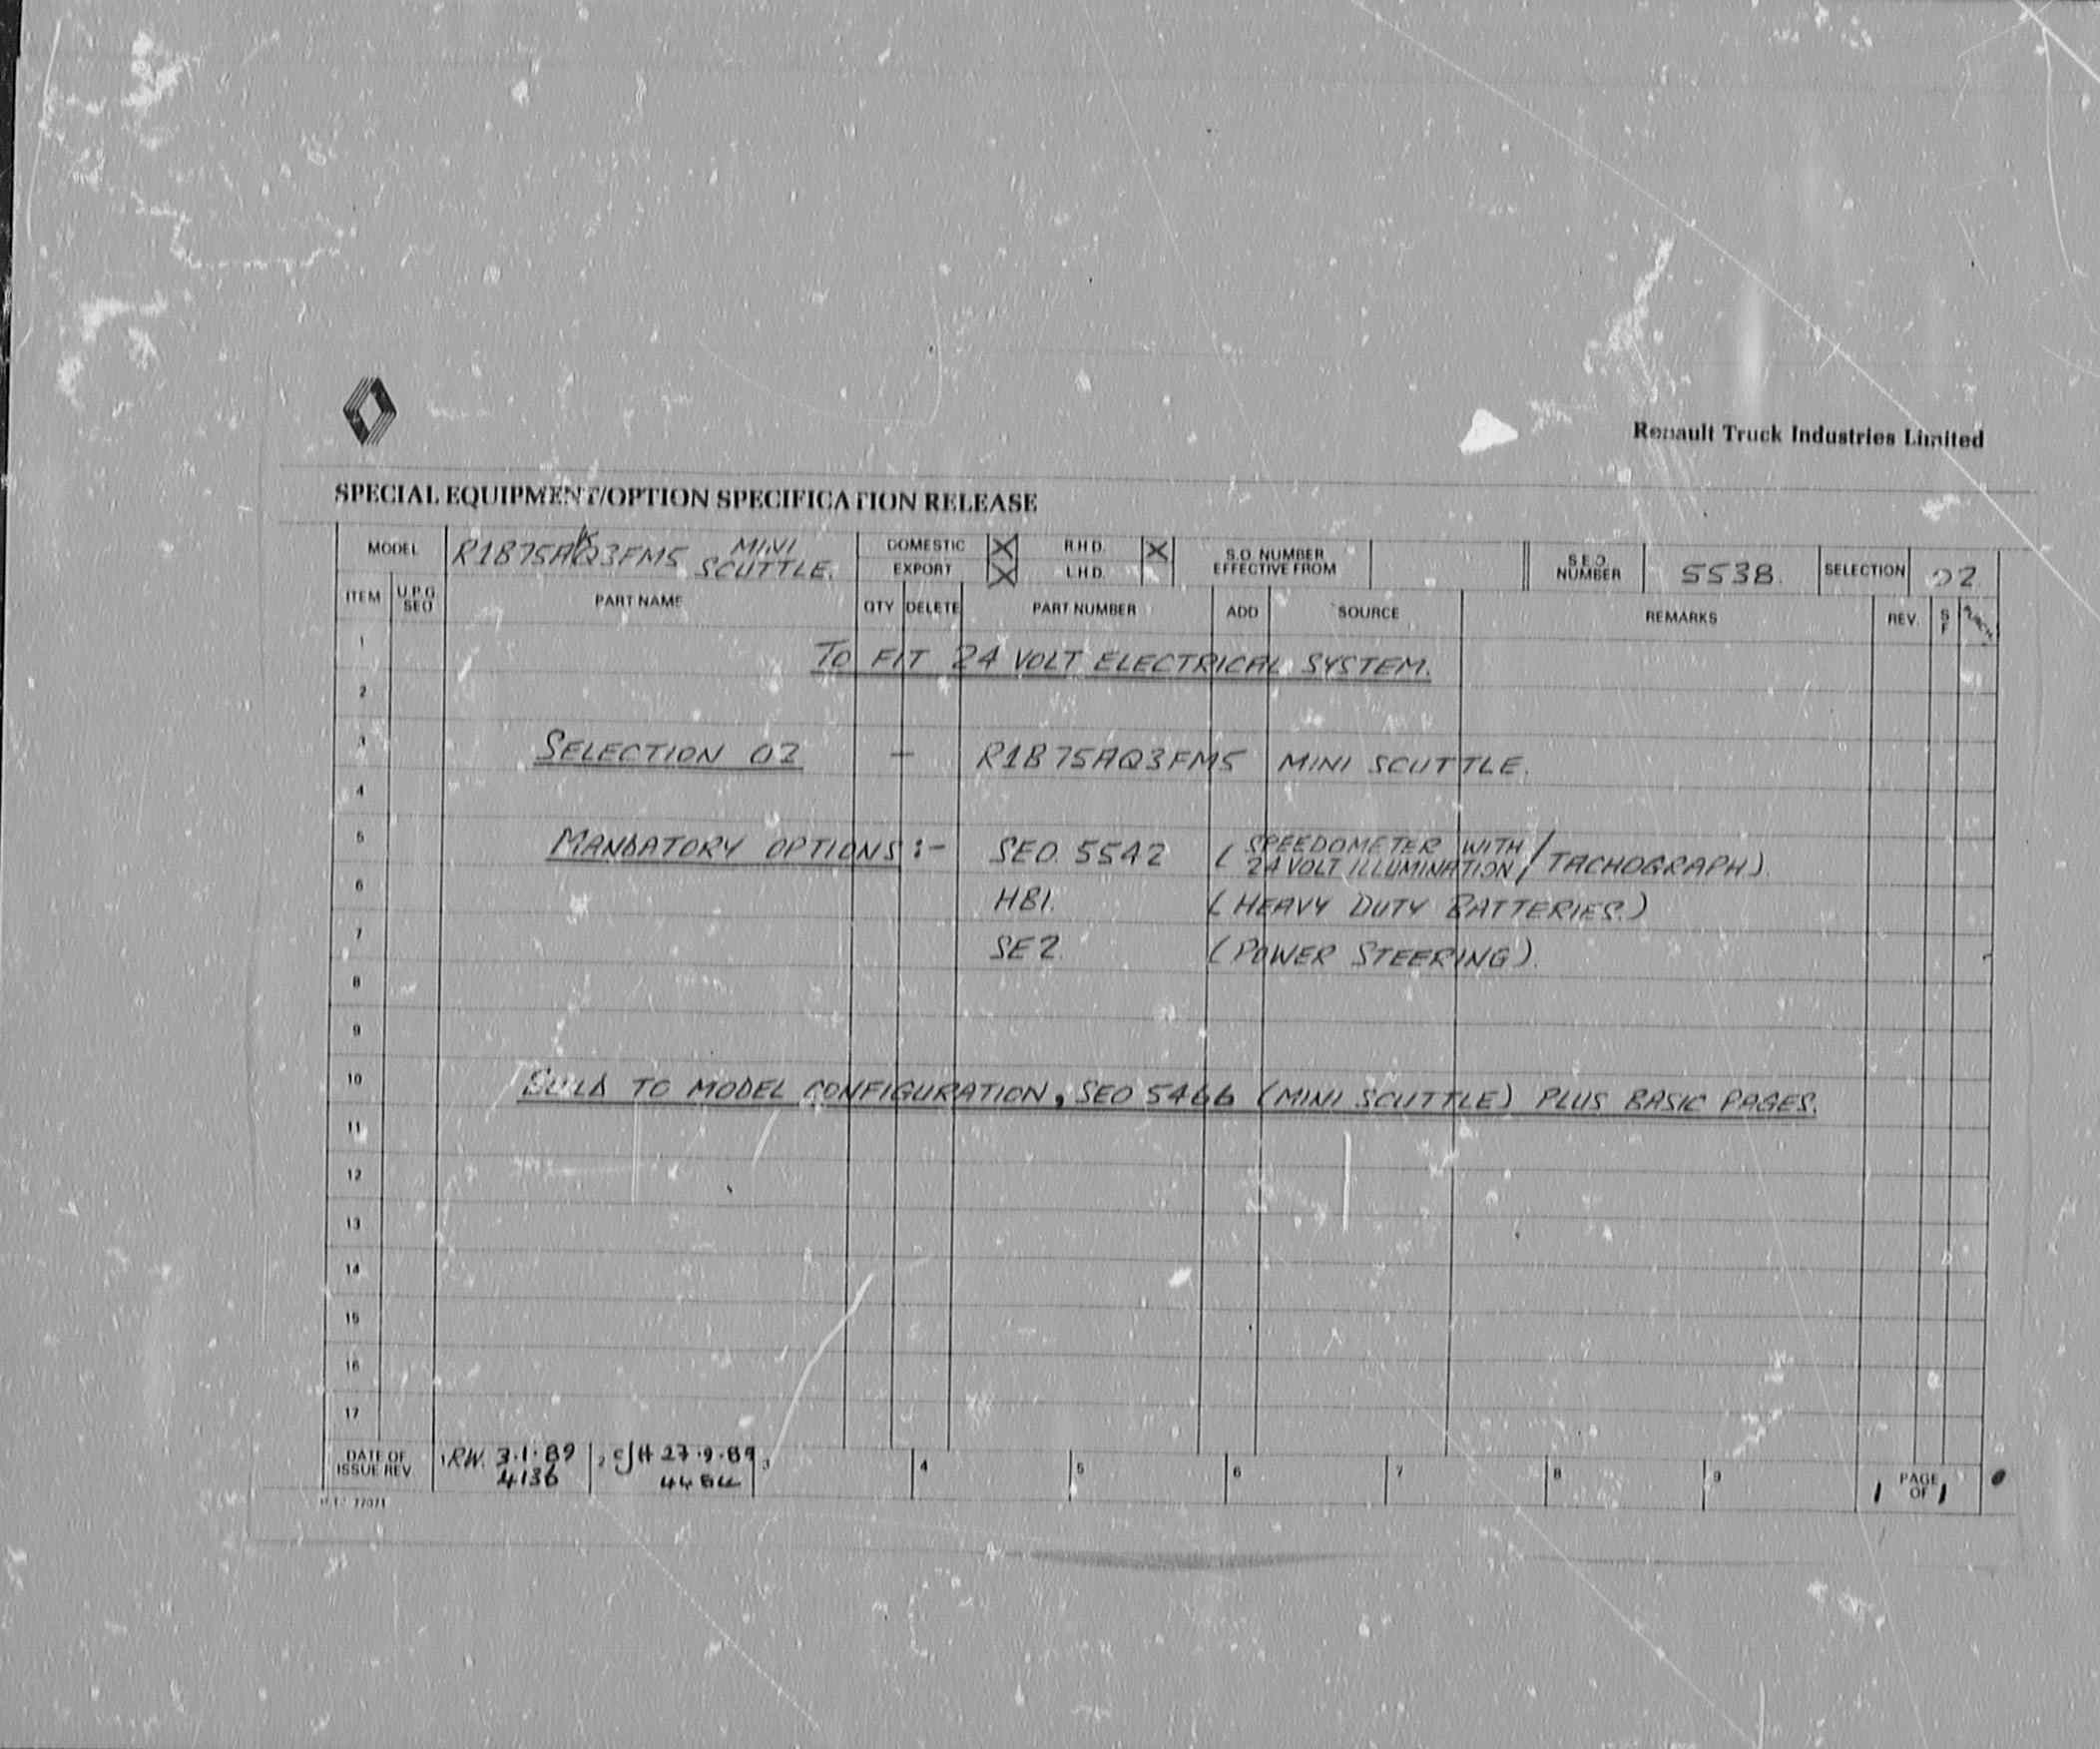 Renault Truck Industries Limited
SPECIAL EQUIPMENT/OPTION SPECIFICATION RELEASE
MODEL R1B75AQ3FM5 MINI SCUTTLE. DOMESTIC X R.H.D. X S.O. NUMBER EFFECTIVE FROM S.E.O. NUMBER 5538. SELECTION 02
EXPORT X L.H.D.
ITEM U.P.G SEO PART NAME QTY DELETE PART NUMBER ADD SOURCE REMARKS REV. S F
1 TO FIT 24 VOLT ELECTRICAL SYSTEM.
2
3 SELECTION 02 - R1B75AQ3FM5 MINI SCUTTLE.
4
5 MANDATORY OPTIONS :- SEO. 5542 ( SPEEDOMETER WITH 24 VOLT ILLUMINATION / TACHOGRAPH ).
6 HB1. ( HEAVY DUTY BATTERIES. )
7 SE2. ( POWER STEERING ).
8
9
10 BUILD TO MODEL CONFIGURATION, SEO 5466 (MINI SCUTTLE) PLUS BASIC PAGES.
11
12
13
14
15
16
17
DATE OF ISSUE REV 1 RW. 3.1.89 2 CJH 27.9.89 3 4 5 6 7 8 9 1 PAGE OF 1
4136
77071